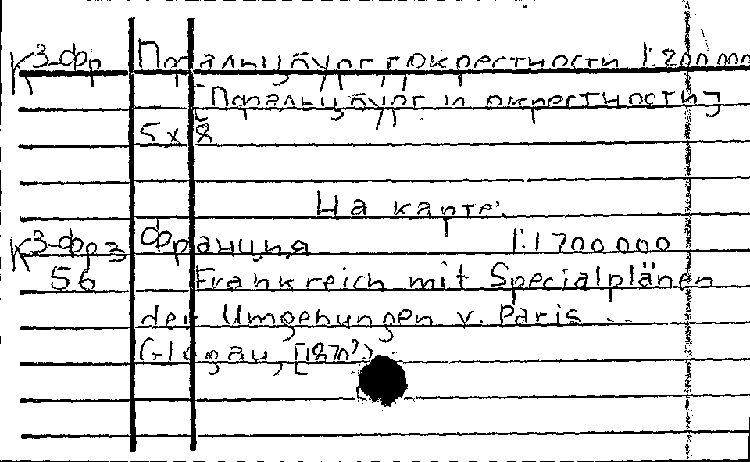 К3-Фр Пфальцбург, окрестности 1:200 000
[Пфальцбург и окрестности]
5 х 8
На карте:
К3-Фр3 Франция 1:1 700 000
56 Frankreich mit Specialplänen
der Umgebungen v. Paris ...
Glogau, [1870?)